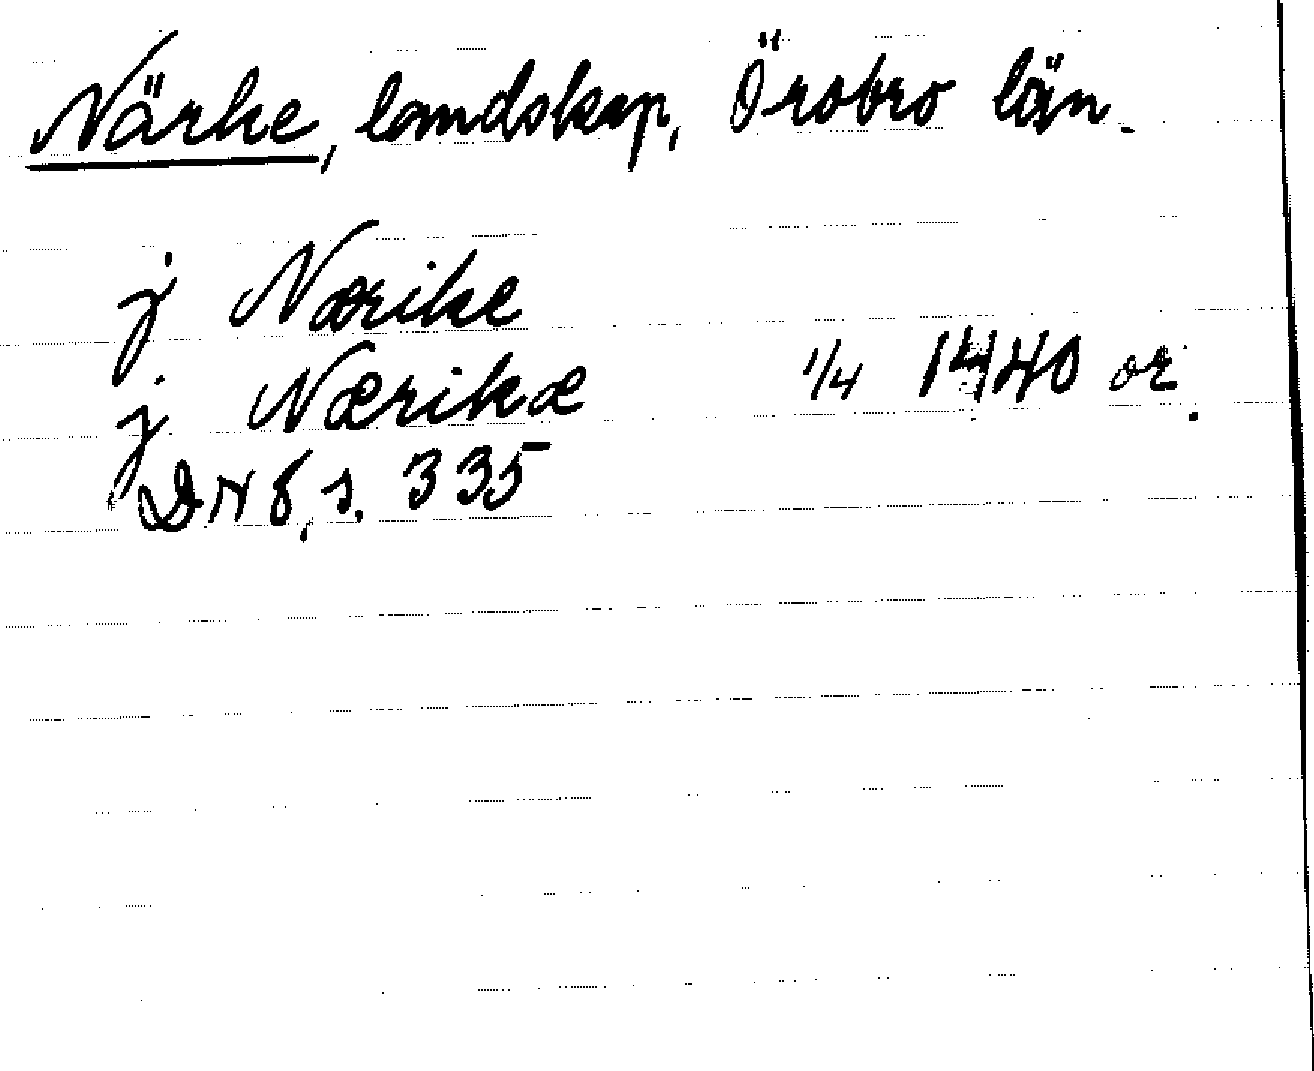 Närke, landskap, Örebro län.
j Nærike
j Nærikæ 1/4 1440 or.
DN 8, s. 335